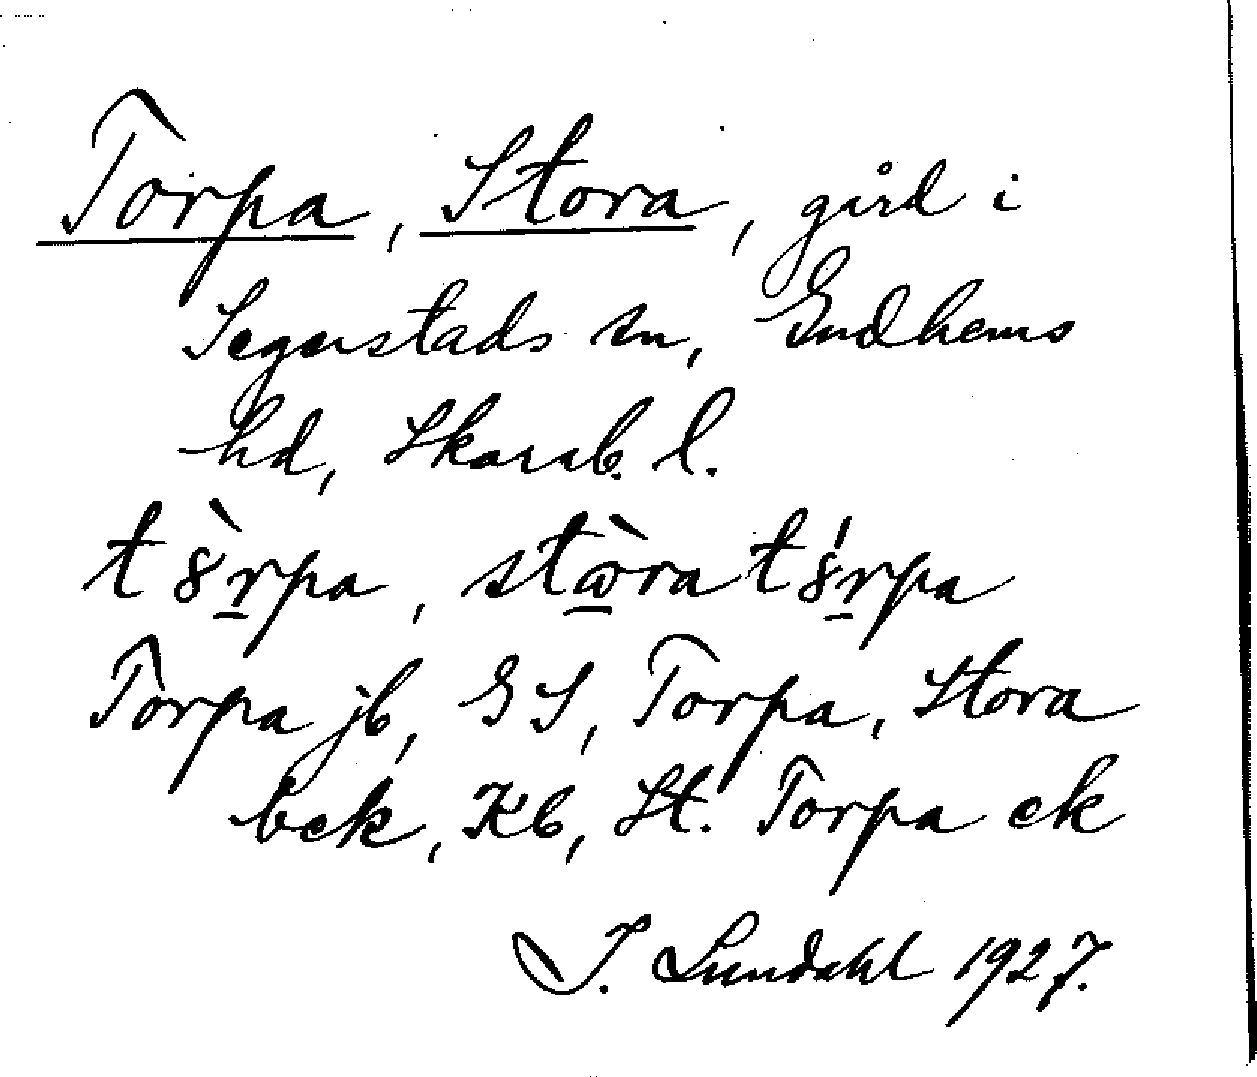 Torpa, Stora, gård i
Segerstads sn, Gudhems
hd, Skarab. l.
t8̀r̠pa, stⱷ̀ra t8́r̠pa
Torpa jb, GS, Torpa, Stora
bek, Kb, St. Torpa ek
I. Lundahl 1927.